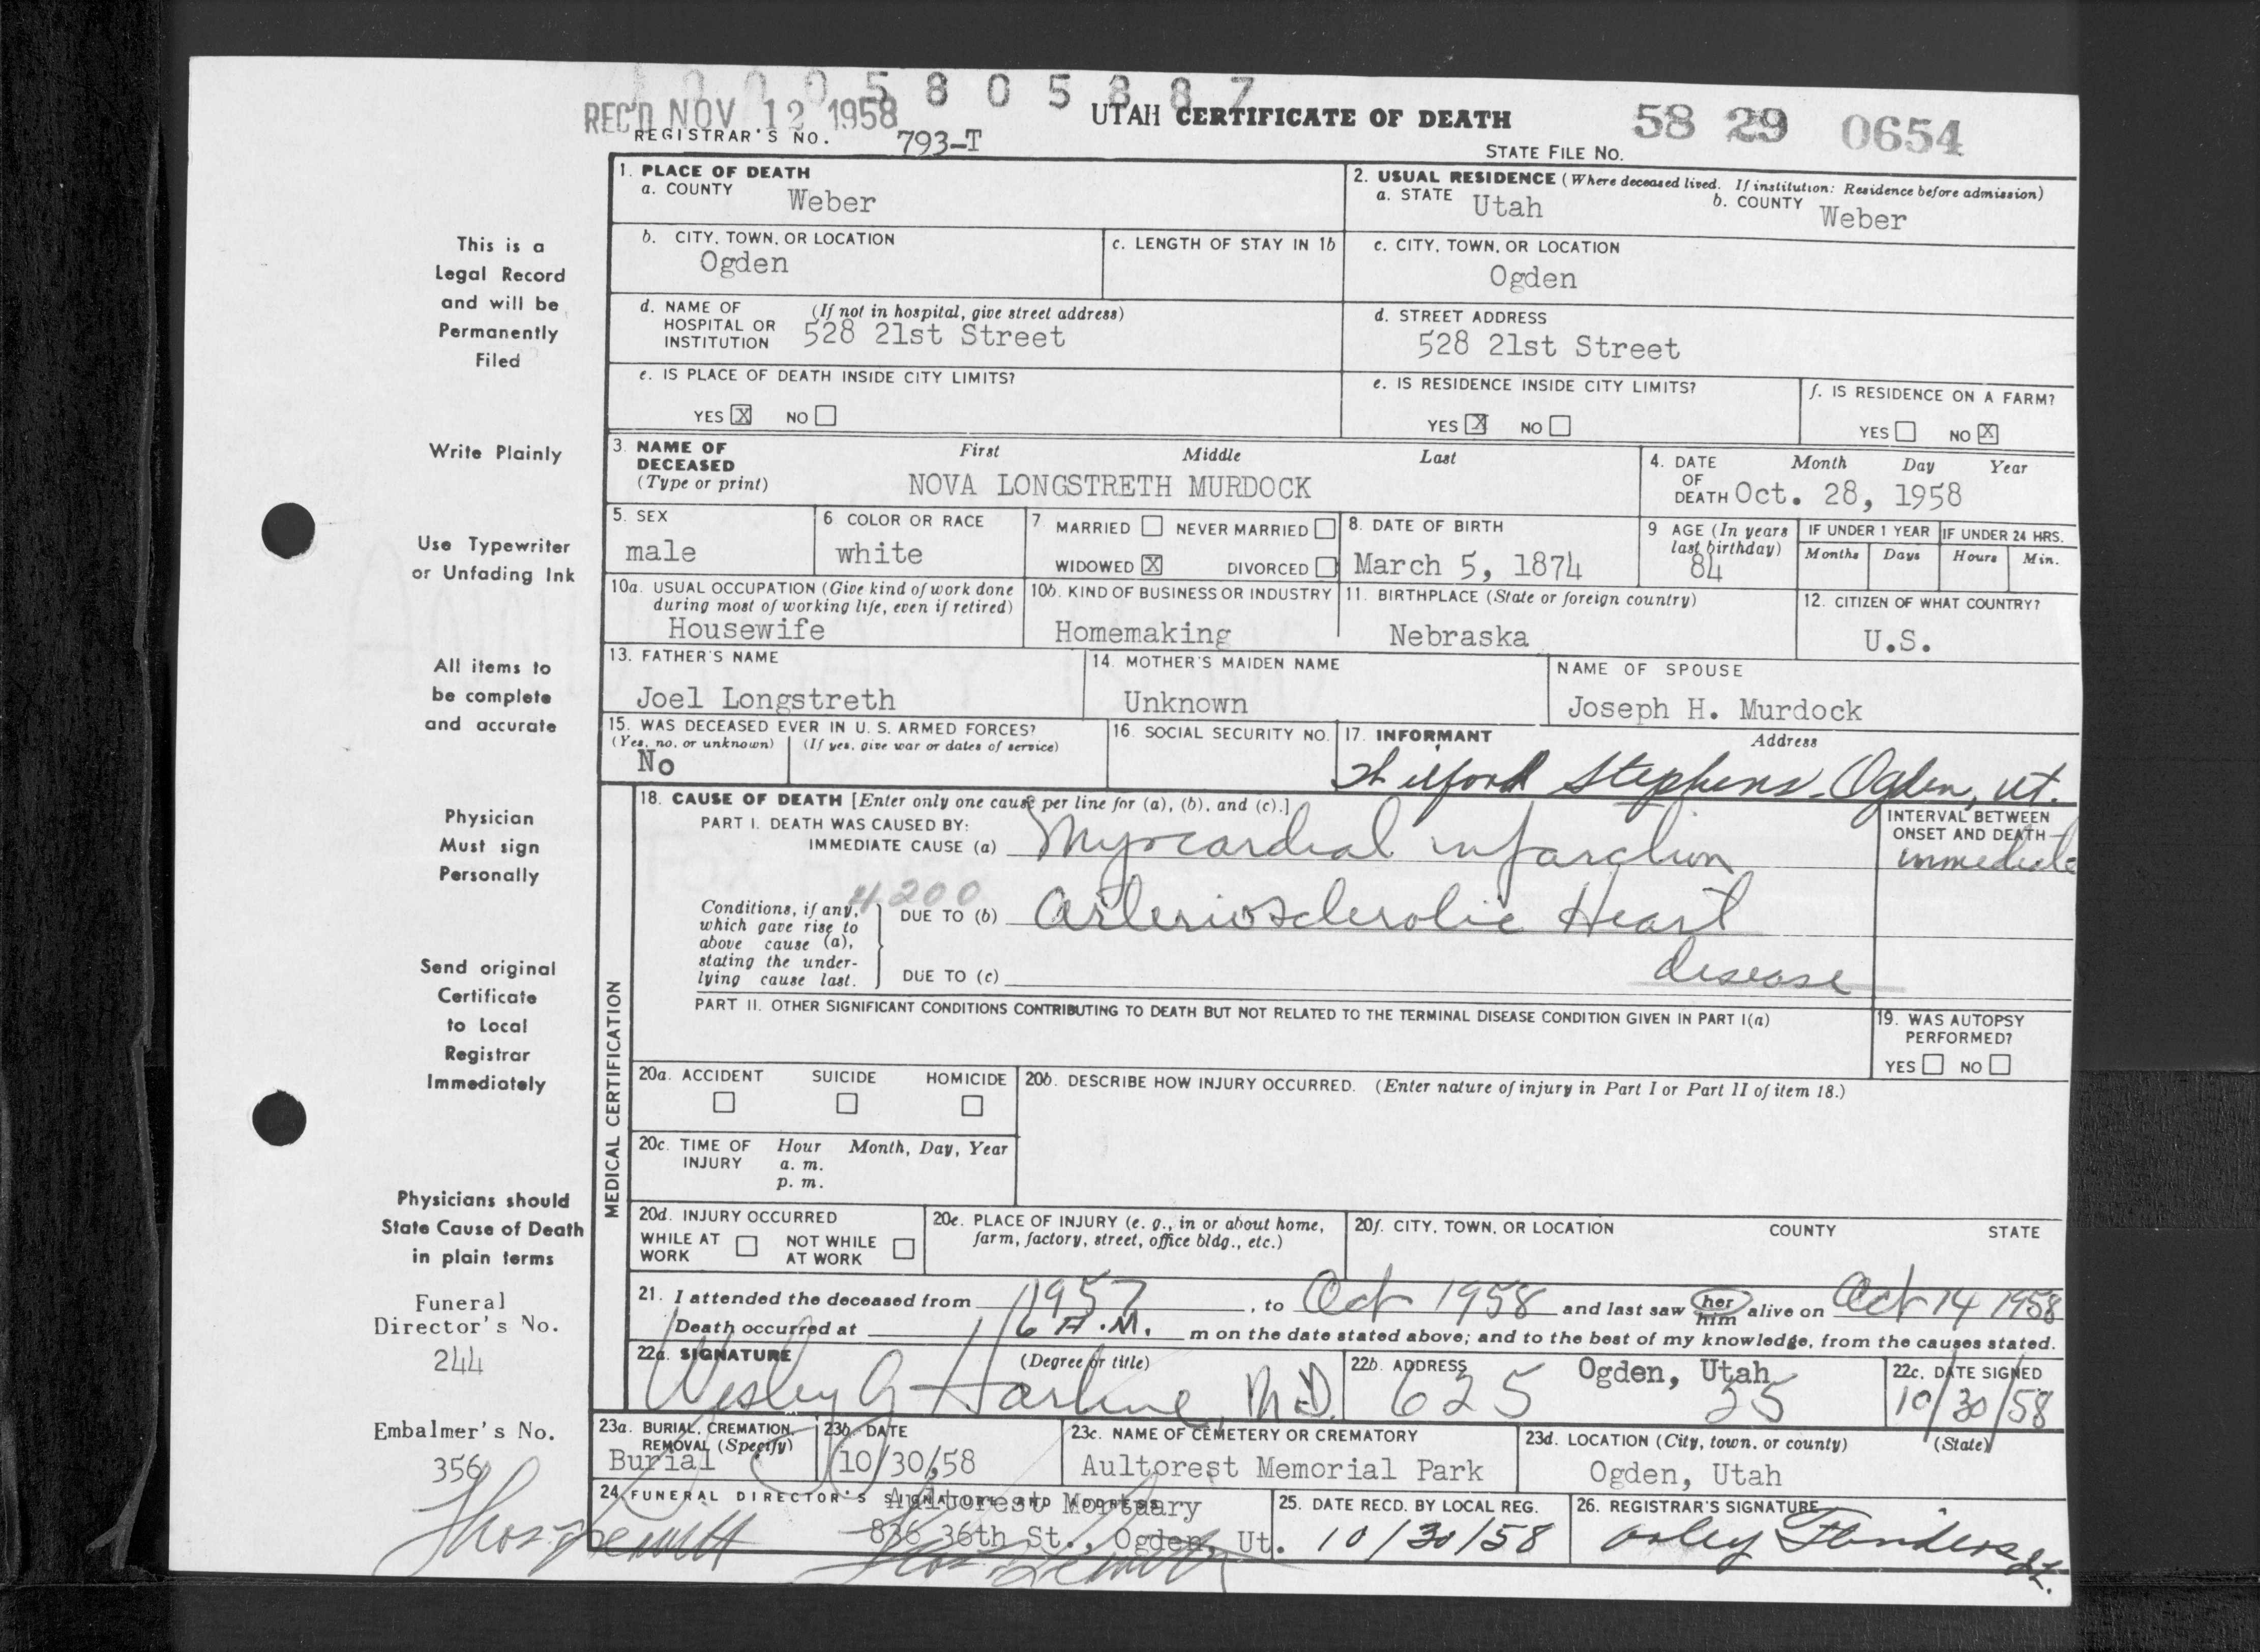 10005805887
REC'D NOV 12 1958
UTAH CERTIFICATE OF DEATH
58 29 0654
REGISTRAR'S NO. 793-T
STATE FILE No.
This is a
Legal Record
and will be
Permanently
Filed
Write Plainly
Use Typewriter
or Unfading Ink
All items to
be complete
and accurate
Physician
Must sign
Personally
Send original
Certificate
to Local
Registrar
Immediately
Physicians should
State Cause of Death
in plain terms
Funeral
Director's No.
244
Embalmer's No.
356
1. PLACE OF DEATH
a. COUNTY Weber
2. USUAL RESIDENCE (Where deceased lived. If institution: Residence before admission)
a. STATE Utah b. COUNTY Weber
b. CITY, TOWN, OR LOCATION
Ogden
c. LENGTH OF STAY IN 1b
c. CITY, TOWN, OR LOCATION
Ogden
d. NAME OF HOSPITAL OR INSTITUTION (If not in hospital, give street address)
528 21st Street
d. STREET ADDRESS
528 21st Street
e. IS PLACE OF DEATH INSIDE CITY LIMITS?
YES X NO
e. IS RESIDENCE INSIDE CITY LIMITS?
YES X NO
f. IS RESIDENCE ON A FARM?
YES NO X
3. NAME OF DECEASED (Type or print) First Middle Last
NOVA LONGSTRETH MURDOCK
4. DATE OF DEATH Month Day Year
Oct. 28, 1958
5. SEX
male
6 COLOR OR RACE
white
7. MARRIED NEVER MARRIED
WIDOWED X DIVORCED
8. DATE OF BIRTH
March 5, 1874
9 AGE (In years last birthday)
84
IF UNDER 1 YEAR IF UNDER 24 HRS.
Months Days Hours Min.
10a. USUAL OCCUPATION (Give kind of work done during most of working life, even if retired)
Housewife
10b. KIND OF BUSINESS OR INDUSTRY
Homemaking
11. BIRTHPLACE (State or foreign country)
Nebraska
12. CITIZEN OF WHAT COUNTRY?
U.S.
13. FATHER'S NAME
Joel Longstreth
14. MOTHER'S MAIDEN NAME
Unknown
NAME OF SPOUSE
Joseph H. Murdock
15. WAS DECEASED EVER IN U. S. ARMED FORCES?
(Yes, no, or unknown) (If yes, give war or dates of service)
No
16. SOCIAL SECURITY NO.
17. INFORMANT Address
Stephens. Ogden, Ut.
MEDICAL CERTIFICATION
18. CAUSE OF DEATH [Enter only one cause per line for (a), (b), and (c).]
PART I. DEATH WAS CAUSED BY:
IMMEDIATE CAUSE (a) Myocardial infarction
INTERVAL BETWEEN ONSET AND DEATH
immediate
4200
Conditions, if any, which gave rise to above cause (a), stating the underlying cause last.
DUE TO (b) Arteriosclerotic Heart
disease
DUE TO (c)
PART II. OTHER SIGNIFICANT CONDITIONS CONTRIBUTING TO DEATH BUT NOT RELATED TO THE TERMINAL DISEASE CONDITION GIVEN IN PART I(a)
19. WAS AUTOPSY PERFORMED?
YES NO
20a. ACCIDENT SUICIDE HOMICIDE
20b. DESCRIBE HOW INJURY OCCURRED. (Enter nature of injury in Part I or Part II of item 18.)
20c. TIME OF INJURY Hour Month, Day, Year
a. m.
p. m.
20d. INJURY OCCURRED
WHILE AT WORK NOT WHILE AT WORK
20e. PLACE OF INJURY (e. g., in or about home, farm, factory, street, office bldg., etc.)
20f. CITY, TOWN, OR LOCATION COUNTY STATE
21. I attended the deceased from 1957, to Oct 1958 and last saw her him alive on Oct 14 1958
Death occurred at 6 A.M. m on the date stated above; and to the best of my knowledge, from the causes stated.
22a. SIGNATURE (Degree or title)
Wesley G Harline, M.D.
22b. ADDRESS Ogden, Utah
625 25
22c. DATE SIGNED
10/30/58
23a. BURIAL, CREMATION, REMOVAL (Specify)
Burial
23b. DATE
10/30/58
23c. NAME OF CEMETERY OR CREMATORY
Aultorest Memorial Park
23d. LOCATION (City, town, or county) (State)
Ogden, Utah
24. FUNERAL DIRECTOR'S SIGNATURE AND ADDRESS
Aultorest Mortuary
836 36th St., Ogden, Ut.
25. DATE RECD. BY LOCAL REG.
10/30/58
26. REGISTRAR'S SIGNATURE